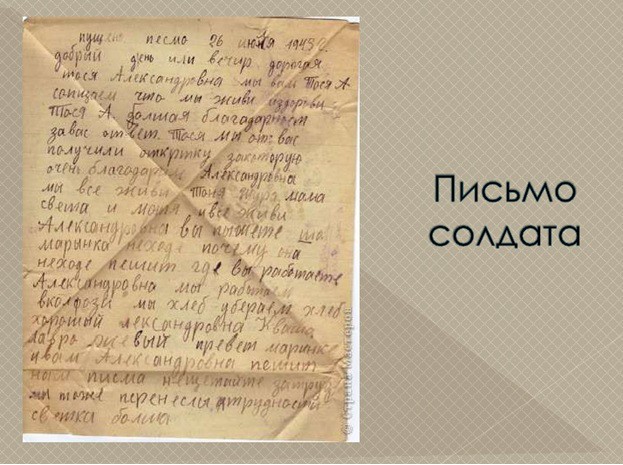 пущено песмо 26 июня 1943 г.
добрый день или вечир дорогая
тося Александровна мы вам Тося А
сопизаем что мы живи издорови
Тося А. болшая благодарност
завас ответ Тося мы от вас
получили откртку закоторую
очень благодарим Александровна
мы все живи Тоня Шура мама
света и мотя ивсе живи
Александровна вы пишете
марынка неходе почему она
неходе пешит где вы работаете
Александровна мы работаем
вколхози мы хлеб убераем хлеб
хороший лександровна
превет маринке
ивам Александровна пешит
нам писма нещетайте затруд
мы тоже перенеслы трудности
светка болша
Письмо
солдата
© Страна Мастеров